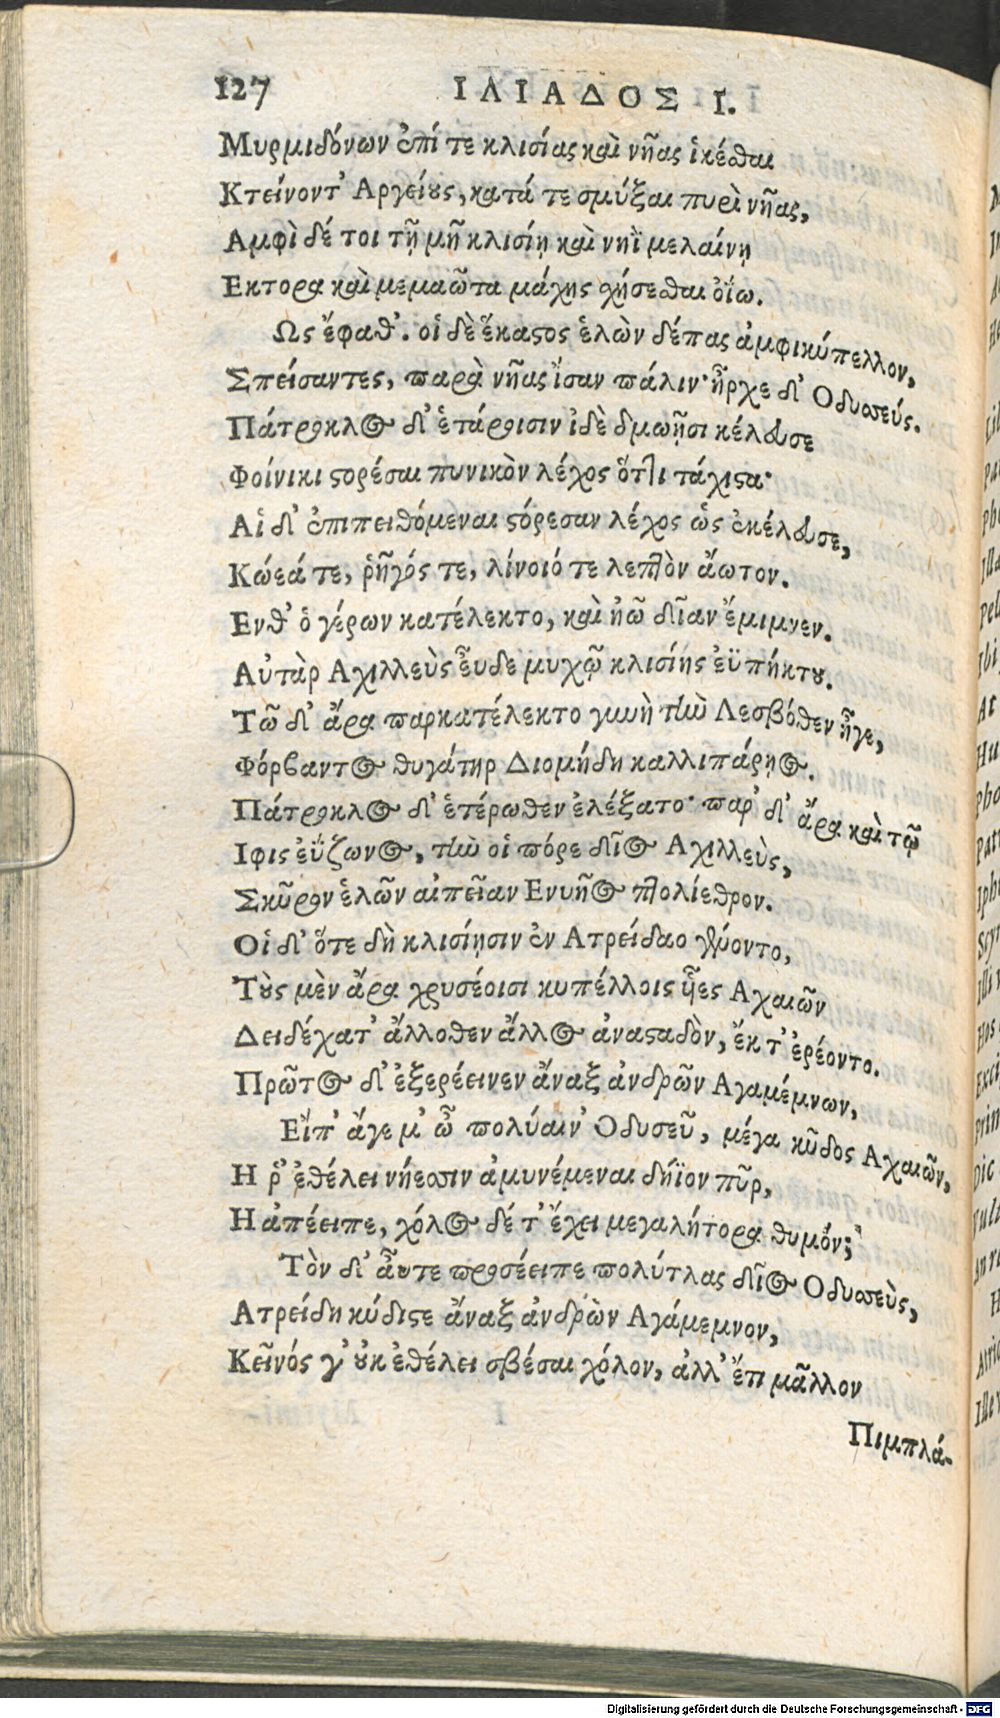 127 ΙΛΙΑΔΟΣ Ι.
Μυρμιδόνων ἐπί τε κλισίας καὶ νῆας ἱκέσθαι
Κτείνοντ' Αργείους, κατά τε σμύξαι πυρὶ νῆας,
Αμφὶ δέ τοι τῇ μῇ κλισίῃ καὶ νηῒ μελαίνῃ
Εκτορα καὶ μεμαῶτα μάχης χήσεσθαι ὀΐω.
Ως ἔφαθ'. οἱ δὲ ἕκαστος ἑλὼν δέπας ἀμφικύπελλον,
Σπείσαντες, παρὰ νῆας ἴσαν πάλιν· ἦρχε δ' Οδυσσεύς.
Πάτροκλος δ' ἑτάροισιν ἰδὲ δμωῇσι κέλευσε
Φοίνικι στορέσαι πυνικὸν λέχος ὅττι τάχιστα·
Αἱ δ' ἐπιπειθόμεναι στόρεσαν λέχος ὡς ἐκέλευσε,
Κώεά τε, ῥῆγός τε, λίνοιό τε λεπτὸν ἄωτον.
Ενθ' ὁ γέρων κατέλεκτο, καὶ ἠῶ δῖαν ἔμιμνεν.
Αὐτὰρ Αχιλλεὺς εὗδε μυχῷ κλισίης ἐϋπήκτου.
Τῶ δ' ἄρα παρκατέλεκτο γυνὴ τὴν Λεσβόθεν ἦγε,
Φόρβαντος θυγάτηρ Διομήδη καλλιπάρῃος.
Πάτροκλος δ' ἑτέρωθεν ἐλέξατο· παρ' δ' ἄρα καὶ τῷ
Ιφις ἐΰζωνος, τὴν οἱ πόρε δῖος Αχιλλεὺς,
Σκῦρον ἑλῶν αἰπεῖαν Ενυῆος πτολίεθρον.
Οἱ δ' ὅτε δὴ κλισίῃσιν ἐν Ατρείδαο γένοντο,
Τοὺς μὲν ἄρα χρυσέοισι κυπέλλοις ἧες Αχαιῶν
Δειδέχατ' ἄλλοθεν ἄλλος ἀνασταδὸν, ἔκ τ' ἐρέοντο.
Πρῶτος δ' ἐξερέεινεν ἄναξ ἀνδρῶν Αγαμέμνων,
Εἴπ' ἄγε μ' ὦ πολύαιν' Οδυσεῦ, μέγα κῦδος Αχαιῶν,
Η ῥ' ἐθέλει νήεσσιν ἀμυνέμεναι δήϊον πῦρ,
Η ἀπέειπε, χόλος δέ τ' ἔχει μεγαλήτορα θυμόν;
Τὸν δ' αὖτε προσέειπε πολύτλας δῖος Οδυσσεὺς,
Ατρείδη κύδιστε ἄναξ ἀνδρὼν Αγάμεμνον,
Κεῖνός γ' οὐκ ἐθέλει σβέσαι χόλον, ἀλλ' ἔπ μᾶλλον
Πιμπλά-
Digitalisierung gefördert durch die Deutsche Forschungsgemeinschaft - DFG